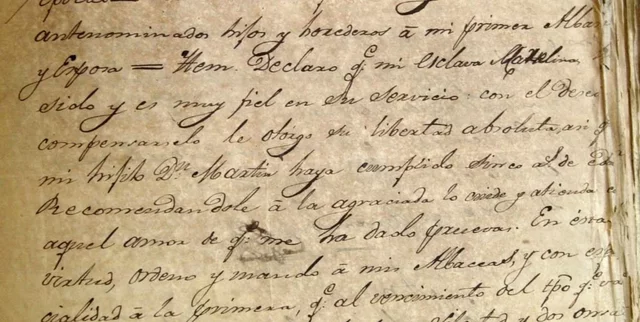 antenominados hijos y herederos à mi primer Alba
y Esposa = Item. Declaro q.e mi esclava Marelina
sido y es muy fiel en su servicio: con el dese
compensarselo le otorgo su libertad absoluta, asi q.e
mi hijito D.n Martin haya cumplido sinco a.s de eda
Recomendandole à la agraciada lo cuide y atienda c
aquel amor de q.e me ha dado pruevas. En ésta
virtud, ordeno y mando à mis Albaceas, y con esp
cialidad à la primera, q.e al vencimiento del tpõ q.e va
libertad y dos onsa